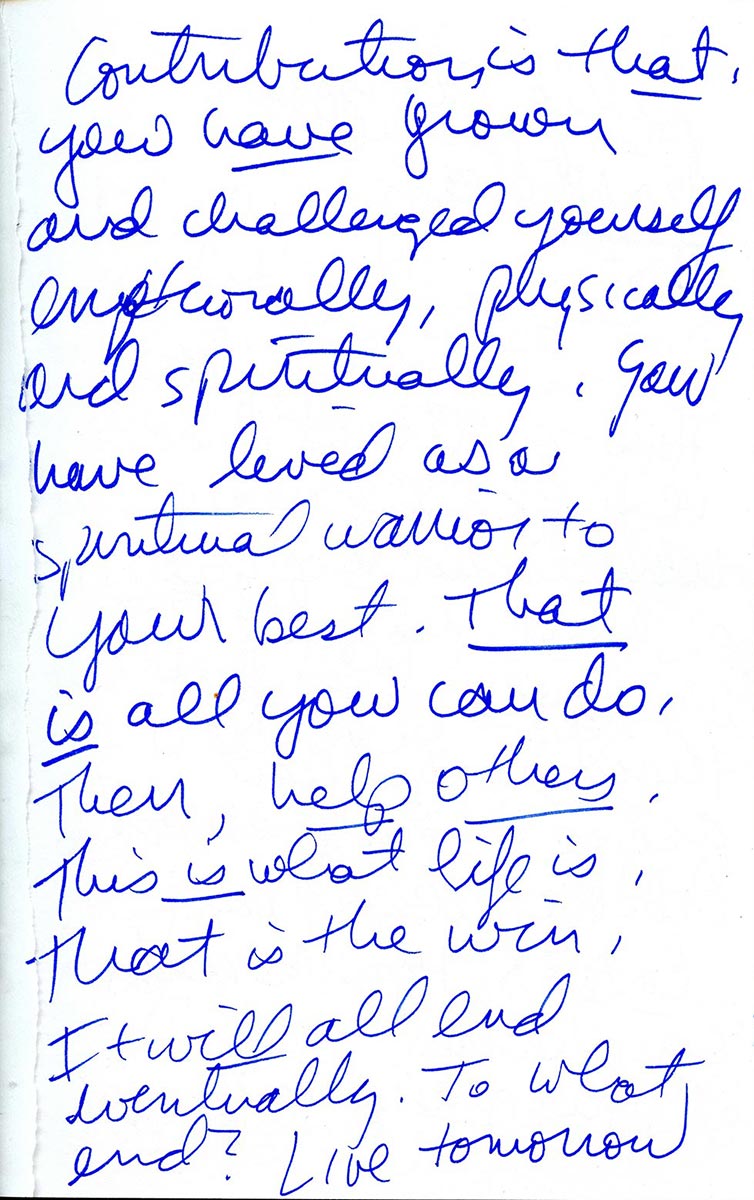 Contribution, is that,
you have grown
and challenged yourself
emotionally, physically
and spiritually. You
have lived as a
spiritual warrior to
your best. That
is all you can do.
Then, help others.
This is what life is,
that is the win,
It will all end
eventually. To what
end? Live tomorrow